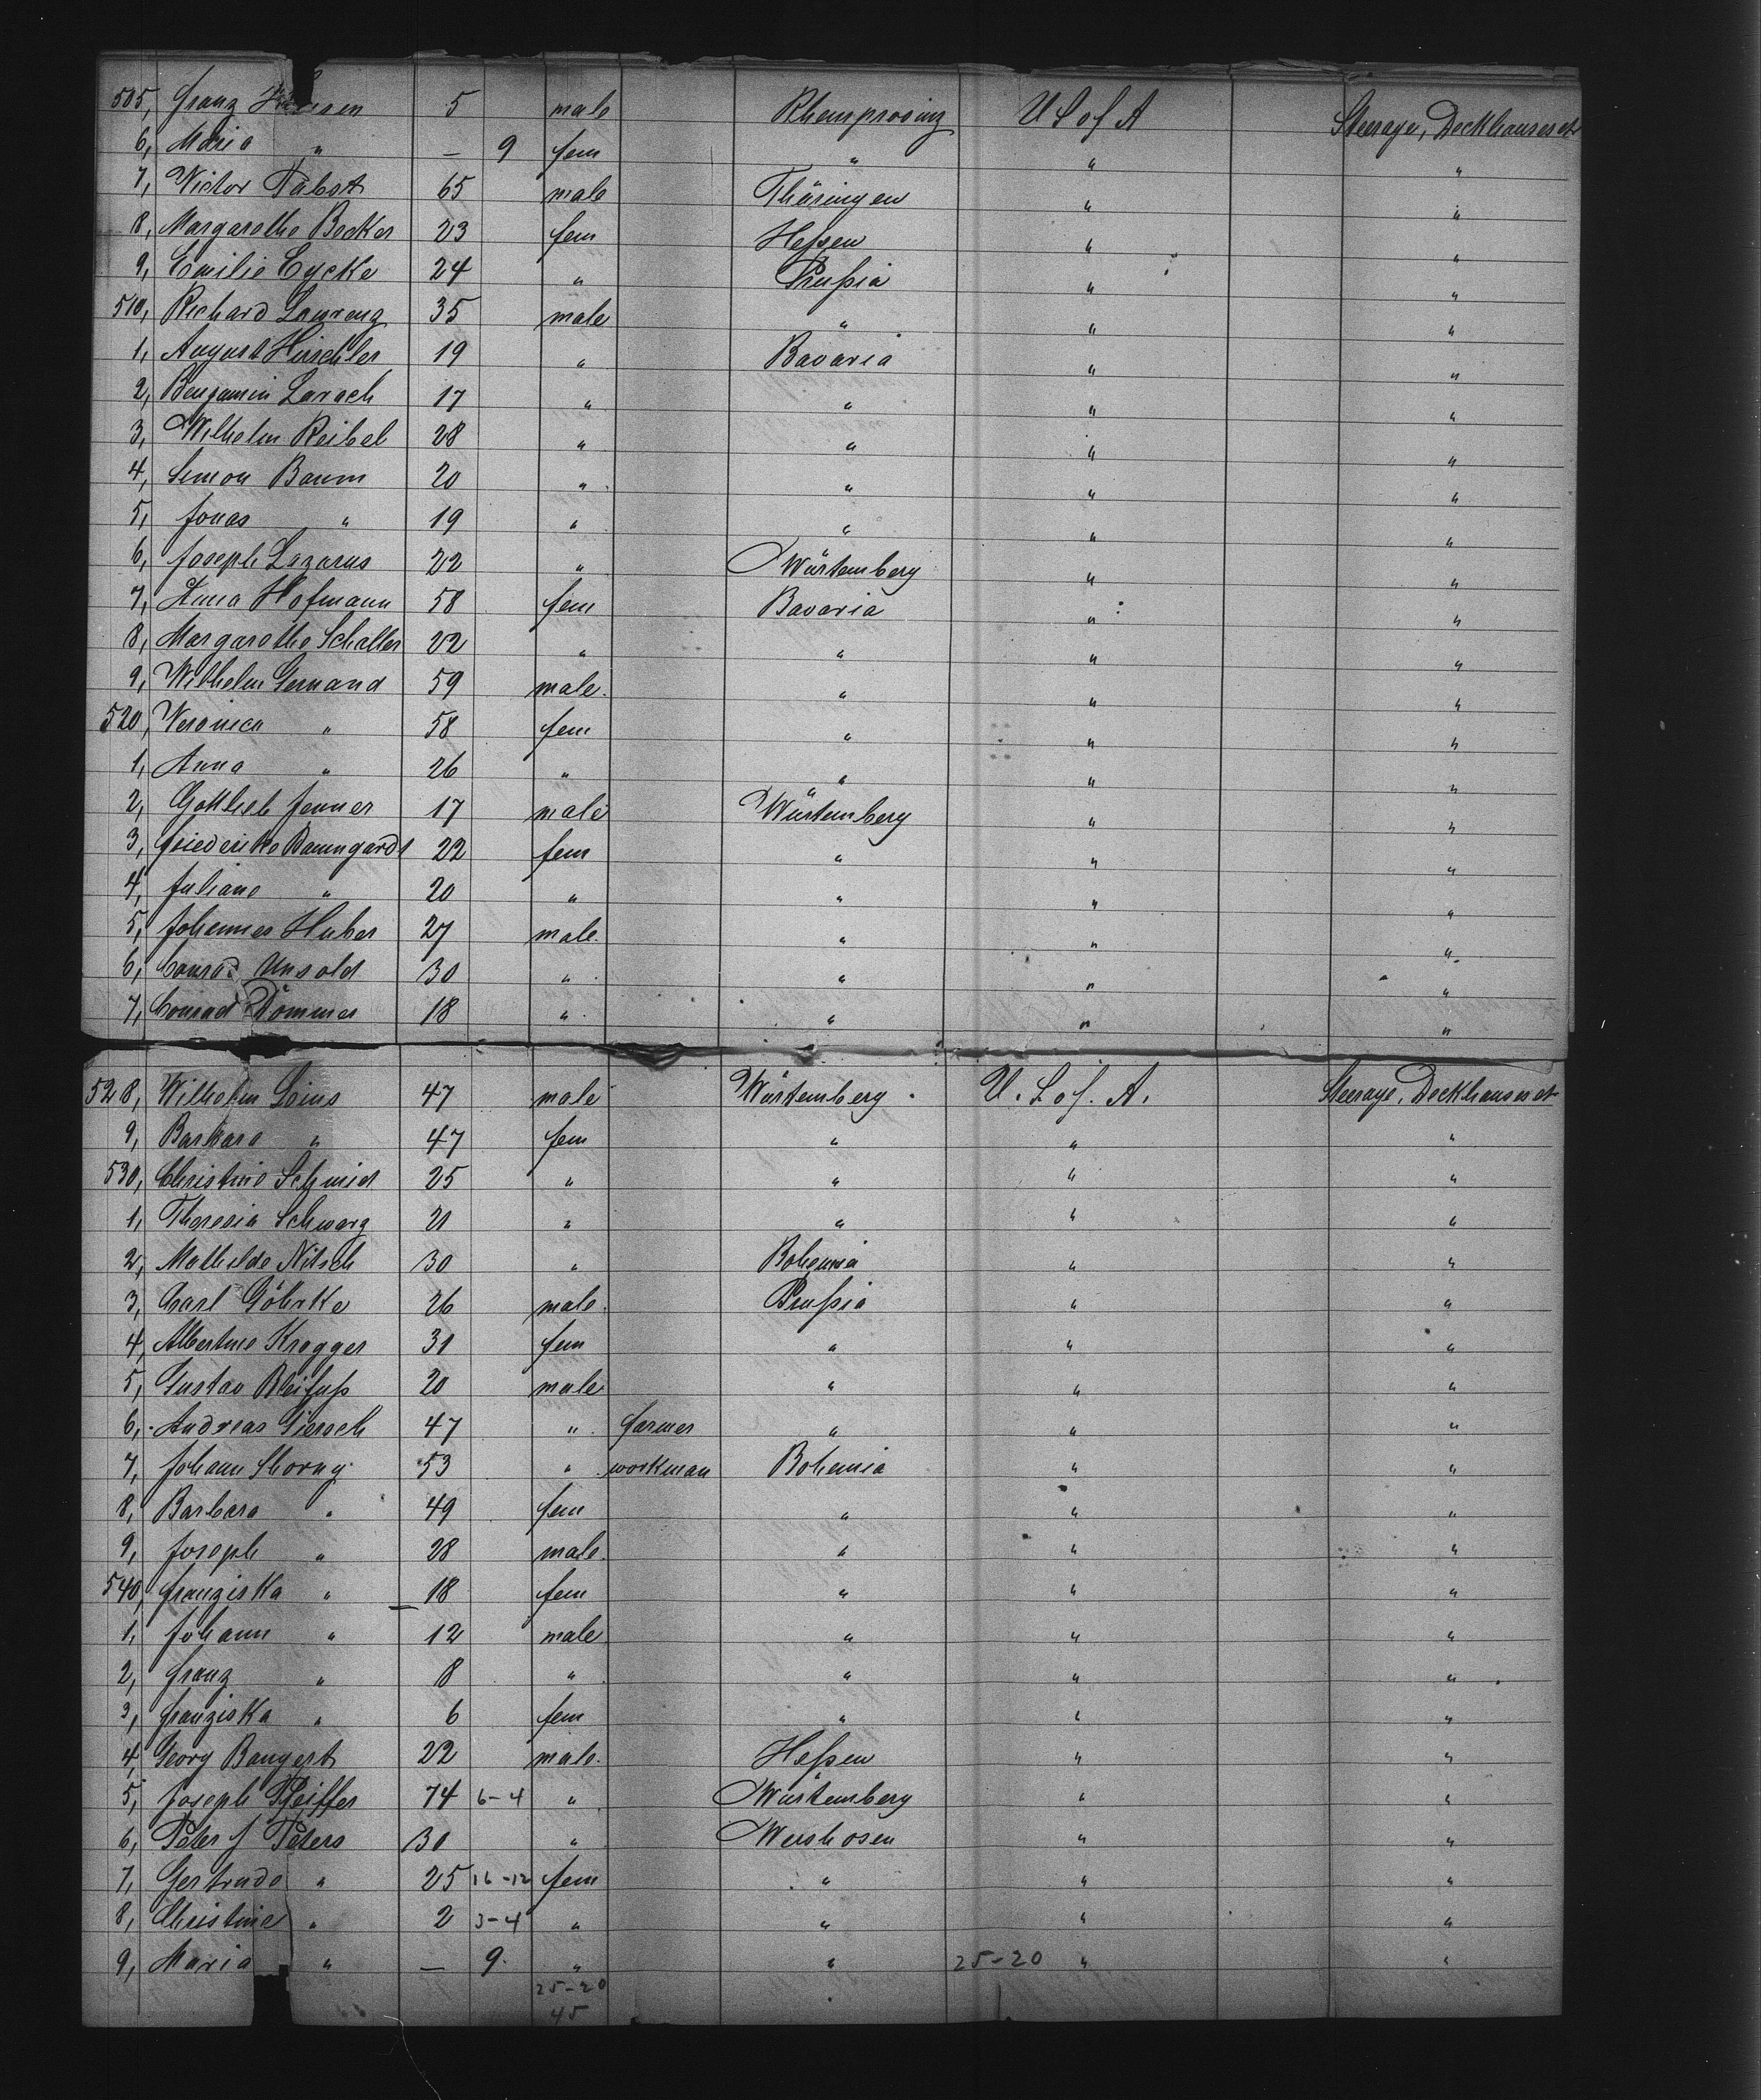 505, Franz 5 male Rheinprovinz U S of A Steerage, Deckhauses et
6, Maria " — 9 fem " " "
7, Victor Pabst 65 male Thüringen " "
8, Margarethe Becker 23 fem Heßen " "
9, Emilie Eycke 24 " Prußia " "
510, Richard Lawrenz 35 male " " "
1, August Hirschler 19 " Bavaria " "
2, Benjamin Lorach 17 " " " "
3, Wilhelm Reibel 28 " " " "
4, Simon Baum 20 " " " "
5, Jonas " 19 " " " "
6, Joseph Lazarus 22 " Würtemberg " "
7, Anna Hofmann 58 fem Bavaria " "
8, Margarethe Schaller 22 " " " "
9, Wilhelm Gernand 59 male " " "
520, Veronica " 58 fem " " "
1, Anna " 26 " " " "
2, Gottlieb Jenner 17 male Würtemberg " "
3, Friederike Baumgardt 22 fem " " "
4, Juliane " 20 " " " "
5, Johannes Huber 27 male " " "
6, Conrad Unsold 30 " " " "
7, Conrad Dömmer 18 " " " "
528, Wilhelm 47 male Würtemberg U. S of. A. Steerage, Deckhauses et
9, Barbara " 47 fem " " "
530, Christine Schmid 25 " " " "
1, Theresia Schwarz 21 " " " "
2, Mathilde Nitsch 30 " Bohemia " "
3, Carl Göhrke 26 male Prußia " "
4, Albertine Krogger 31 fem " " "
5, Gustav Bleifuß 20 male " " "
6, Andreas Giersch 47 " farmer " " "
7, Johann 53 " workman Bohemia " "
8, Barbara " 49 fem " " "
9, Joseph " 28 male " " "
540, Franziska " 18 fem " " "
1, Johann " 12 male " " "
2, Franz " 8 " " " "
3, Franziska " 6 fem " " "
4, Georg Bangert 22 male Heßen " "
5, Joseph Pfeiffer 74 6-4 " Würtemberg " "
6, Peter J Peters 30 " Wershosen " "
7, Gertrude " 25 16-12 fem " " "
8, Christine " 2 3-4 " " " "
9, Maria " — 9 " " 25-20 " "
25-20
45